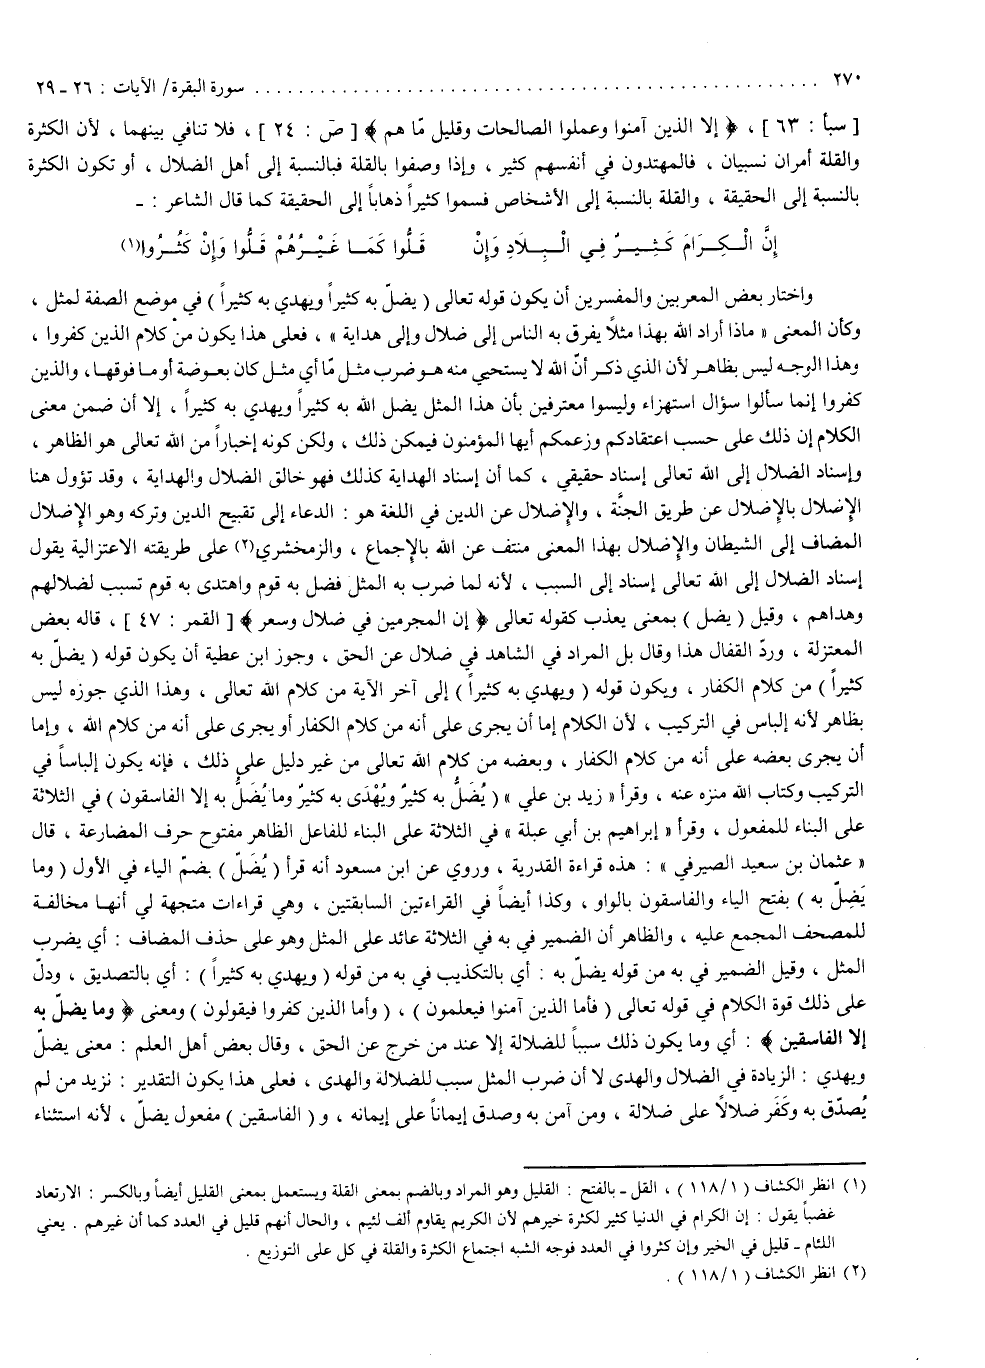 ٢٧٠ ........................................ سورة البقرة/ الآيات : ٢٦ ـ ٢٩
[ سبأ : ٦٣ ] ، ﴿ إلا الذين آمنوا وعملوا الصالحات وقليل مّا هم ﴾ [ صَ : ٢٤ ] ، فلا تنافي بينهما ، لأن الكثرة
والقلة أمران نسبيان ، فالمهتدون في أنفسهم كثير ، وإذا وصفوا بالقلة فبالنسبة إلى أهل الضلال ، أو تكون الكثرة
بالنسبة إلى الحقيقة ، والقلة بالنسبة إلى الأشخاص فسموا كثيراً ذهاباً إلى الحقيقة كما قال الشاعر : ـ
إِنَّ الْكِرَامَ كَثِيرٌ فِي الْبِلَادِ وَإِنْ قَلُّوا كَمَا غَيْرُهُمْ قَلُّوا وَإِنْ كَثُرُوا(١)
واختار بعض المعربين والمفسرين أن يكون قوله تعالى ( يضلّ به كثيراً ويهدي به كثيراً ) في موضع الصفة لمثل ،
وكأن المعنى « ماذا أراد الله بهذا مثلاً يفرق به الناس إلى ضلال وإلى هداية » ، فعلى هذا يكون من كلام الذين كفروا ،
وهذا الوجه ليس بظاهر لأن الذي ذكر أنّ الله لا يستحيي منه هو ضرب مثل مّا أي مثل كان بعوضة أو ما فوقها ، والذين
كفروا إنما سألوا سؤال استهزاء وليسوا معترفين بأن هذا المثل يضل الله به كثيراً ويهدي به كثيراً ، إلا أن ضمن معنى
الكلام إن ذلك على حسب اعتقادكم وزعمكم أيها المؤمنون فيمكن ذلك ، ولكن كونه إخباراً من الله تعالى هو الظاهر ،
وإسناد الضلال إلى الله تعالى إسناد حقيقي ، كما أن إسناد الهداية كذلك فهو خالق الضلال والهداية ، وقد تؤول هنا
الإضلال بالإضلال عن طريق الجنَّة ، والإضلال عن الدين في اللغة هو : الدعاء إلى تقبيح الدين وتركه وهو الإضلال
المضاف إلى الشيطان والإضلال بهذا المعنى منتف عن الله بالإجماع ، والزمخشري(٢) على طريقته الاعتزالية يقول
إسناد الضلال إلى الله تعالى إسناد إلى السبب ، لأنه لما ضرب به المثل فضل به قوم واهتدى به قوم تسبب لضلالهم
وهداهم ، وقيل ( يضل ) بمعنى يعذب كقوله تعالى ﴿ إن المجرمين في ضلال وسعر ﴾ [ القمر : ٤٧ ] ، قاله بعض
المعتزلة ، وردّ القفال هذا وقال بل المراد في الشاهد في ضلال عن الحق ، وجوز ابن عطية أن يكون قوله ( يضلّ به
كثيراً ) من كلام الكفار ، ويكون قوله ( ويهدي به كثيراً ) إلى آخر الآية من كلام الله تعالى ، وهذا الذي جوزه ليس
بظاهر لأنه إلباس في التركيب ، لأن الكلام إما أن يجرى على أنه من كلام الكفار أو يجرى على أنه من كلام الله ، وإما
أن يجرى بعضه على أنه من كلام الكفار ، وبعضه من كلام الله تعالى من غير دليل على ذلك ، فإنه يكون إلباساً في
التركيب وكتاب الله منزه عنه ، وقرأ « زيد بن علي » ( يُضَلُّ به كثيرٌ ويُهْدَى به كثيرٌ وما يُضَلُّ به إلا الفاسقون ) في الثلاثة
على البناء للمفعول ، وقرأ « إبراهيم بن أبي عبلة » في الثلاثة على البناء للفاعل الظاهر مفتوح حرف المضارعة ، قال
« عثمان بن سعيد الصيرفي » : هذه قراءة القدرية ، وروي عن ابن مسعود أنه قرأ ( يُضَلّ ) بضمّ الياء في الأول ( وما
يَضِلّ به ) بفتح الياء والفاسقون بالواو ، وكذا أيضاً في القراءتين السابقتين ، وهي قراءات متجهة لي أنها مخالفة
للمصحف المجمع عليه ، والظاهر أن الضمير في به في الثلاثة عائد على المثل وهو على حذف المضاف : أي يضرب
المثل ، وقيل الضمير في به من قوله يضلّ به : أي بالتكذيب في به من قوله ( ويهدي به كثيراً ) : أي بالتصديق ، ودلّ
على ذلك قوة الكلام في قوله تعالى ( فأما الذين آمنوا فيعلمون ) ، ( وأما الذين كفروا فيقولون ) ومعنى ﴿ وما يضلّ به
إلا الفاسقين ﴾ : أي وما يكون ذلك سبباً للضلالة إلا عند من خرج عن الحق ، وقال بعض أهل العلم : معنى يضلّ
ويهدي : الزيادة في الضلال والهدى لا أن ضرب المثل سبب للضلالة والهدى ، فعلى هذا يكون التقدير : نزيد من لم
يُصدّق به وكَفَر ضلالًا على ضلالة ، ومن آمن به وصدق إيماناً على إيمانه ، و ( الفاسقين ) مفعول يضلّ ، لأنه استثناء
(١) انظر الكشاف ( ١/ ١١٨ ) ، القل ـ بالفتح : القليل وهو المراد وبالضم بمعنى القلة ويستعمل بمعنى القليل أيضاً وبالكسر : الارتعاد
غضباً يقول : إن الكرام في الدنيا كثير لكثرة خيرهم لأن الكريم يقاوم ألف لئيم ، والحال أنهم قليل في العدد كما أن غيرهم . يعني
اللئام ـ قليل في الخير وإن كثروا في العدد فوجه الشبه اجتماع الكثرة والقلة في كل على التوزيع .
(٢) انظر الكشاف ( ١/ ١١٨ ) .